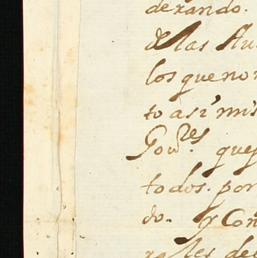 dexando.
de las Au
los que no n
to asi mis
Gov.res que
todos. por
do. y Con
rales de